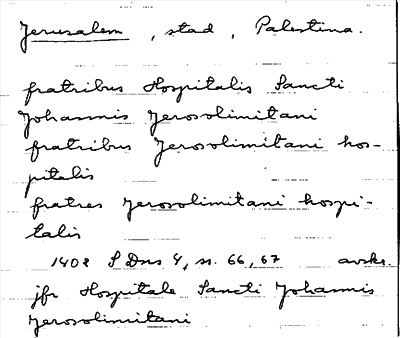 Jerusalem, stad, Palestina.
fratribus Hospitalis Sancti
Johannis Jerosolimitani
fratribus Jerosolimitani hos-
pitalis
fratres Jerosolimitani hospi-
talis
1402 SDns 4, n. 66, 67 avskr.
jfr Hospitale Sancti Johannis
Jerosolimitani